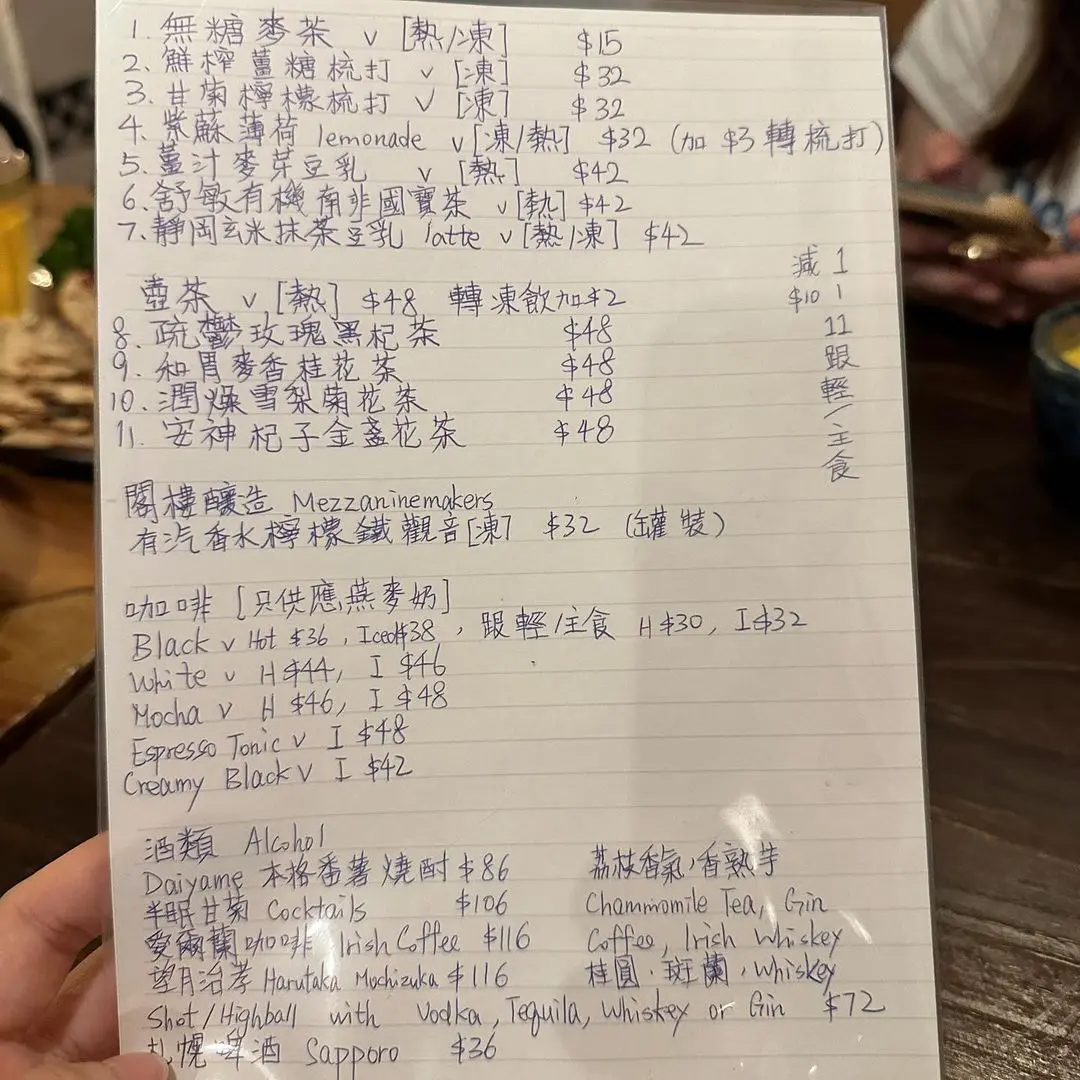 1. 無糖麥茶 v [熱/凍] $15
2. 鮮榨薑糖梳打 v [凍] $32
3. 甘菊檸檬梳打 v [凍] $32
4. 紫蘇薄荷 lemonade v [凍/熱] $32 (加 $3 轉梳打)
5. 薑汁麥芽豆乳 v [熱] $42
6. 舒敏有機南非國寶茶 v [熱] $42
7. 靜岡玄米抹茶豆乳 latte v [熱/凍] $42
壺茶 v [熱] $48 轉凍飲加$2
8. 疏鬱玫瑰黑杞茶 $48
9. 和胃麥香桂花茶 $48
10. 潤燥雪梨菊花茶 $48
11. 安神杞子金盞花茶 $48
1 | 11 跟輕/主食
減 $10
閣樓釀造 Mezzaninemakers
有汽香水檸檬鐵觀音[凍] $32 (罐裝)
咖啡 [只供應燕麥奶]
Black v Hot $36, Iced $38, 跟輕/主食 H $30, I $32
White v H $44, I $46
Mocha v H $46, I $48
Espresso Tonic v I $48
Creamy Black v I $42
酒類 Alcohol
Daiyame 本格番薯燒酎 $86 荔枝香氣,香熟芋
半眠甘菊 Cocktails $106 Chammomile Tea, Gin
愛爾蘭咖啡 Irish Coffee $116 Coffee, Irish Whiskey
望月治孝 Harutaka Mochizuka $116 桂圓.斑蘭,Whiskey
Shot/Highball with Vodka, Tequila, Whiskey or Gin $72
札幌啤酒 Sapporo $36